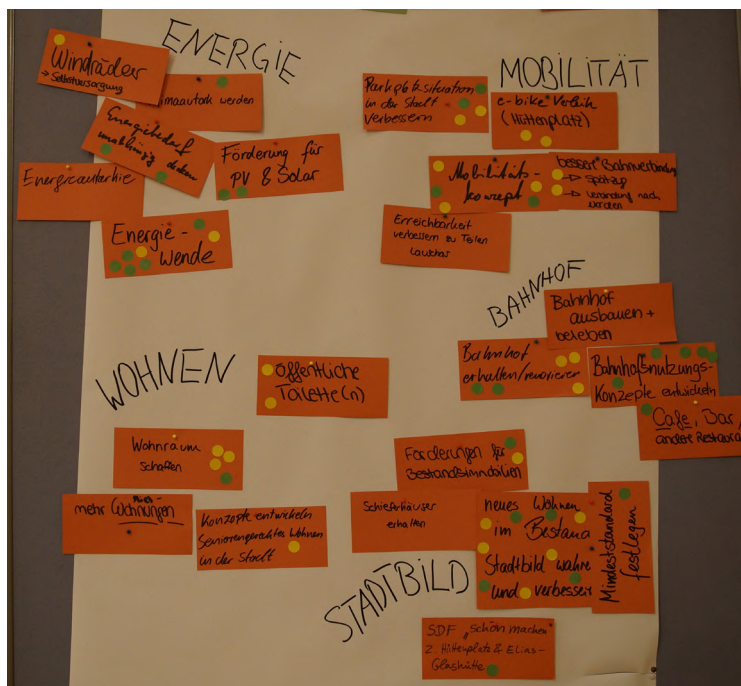 ENERGIE
Windräder
→ Selbstversorgung
limaautark werden
Energiebedarf
unabhängig decken
Förderung für
PV & Solar
Energieautarkie
Energie-
Wende
MOBILITÄT
Parkplatzsituation
in der Stadt
verbessern
e-bike Verleih
(Hüttenplatz)
Mobilitäts-
konzept
bessere Bahnverbindung
→ Spätzug
→ Verbindung nach
norden
Erreichbarkeit
verbessern zu Teilen
Lauschas
BAHNHOF
Bahnhof
ausbauen +
beleben
Bahnhof
erhalten/renovieren
Bahnhofsnutzungs-
Konzepte entwickeln
Cafe, Bar,
andere Restaura
WOHNEN
öffentliche
Toilette(n)
Wohnraum
schaffen
mehr Wohnungen
Konzepte entwickeln
Seniorengerechtes Wohnen
in der Stadt
STADTBILD
Förderungen für
Bestandsimmobilien
Schieferhäuser
erhalten
neues Wohnen
im Bestand
Stadtbild wahren
und verbessern
Mindeststandard
festlegen
SDF "schön machen"
z. Hüttenplatz & Elias-
Glashütte